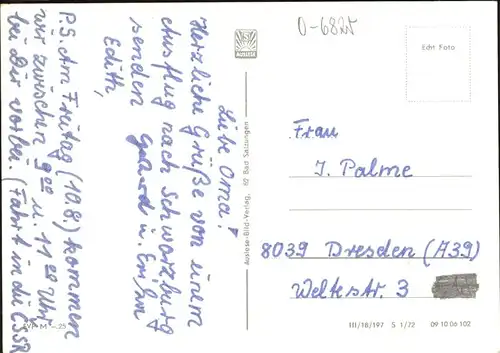 O-6825
Echt Foto
Liebe Oma!
Herzliche Grüße von einem
Ausflug nach Schwarzburg
senden Gerhard u.
Edith,
P.S. Am Freitag (10.8) kommen
wir zwischen 9⁰⁰ u. 11⁰⁰ Uhr
bei Dir vorbei. (Fahrt in die ČSSR
Auslese-Bild-Verlag, 62 Bad Salzungen
Frau
J. Palme
8039 Dresden (A39)
Weltestr. 3
III/18/197 S 1/72 09 10 06 102